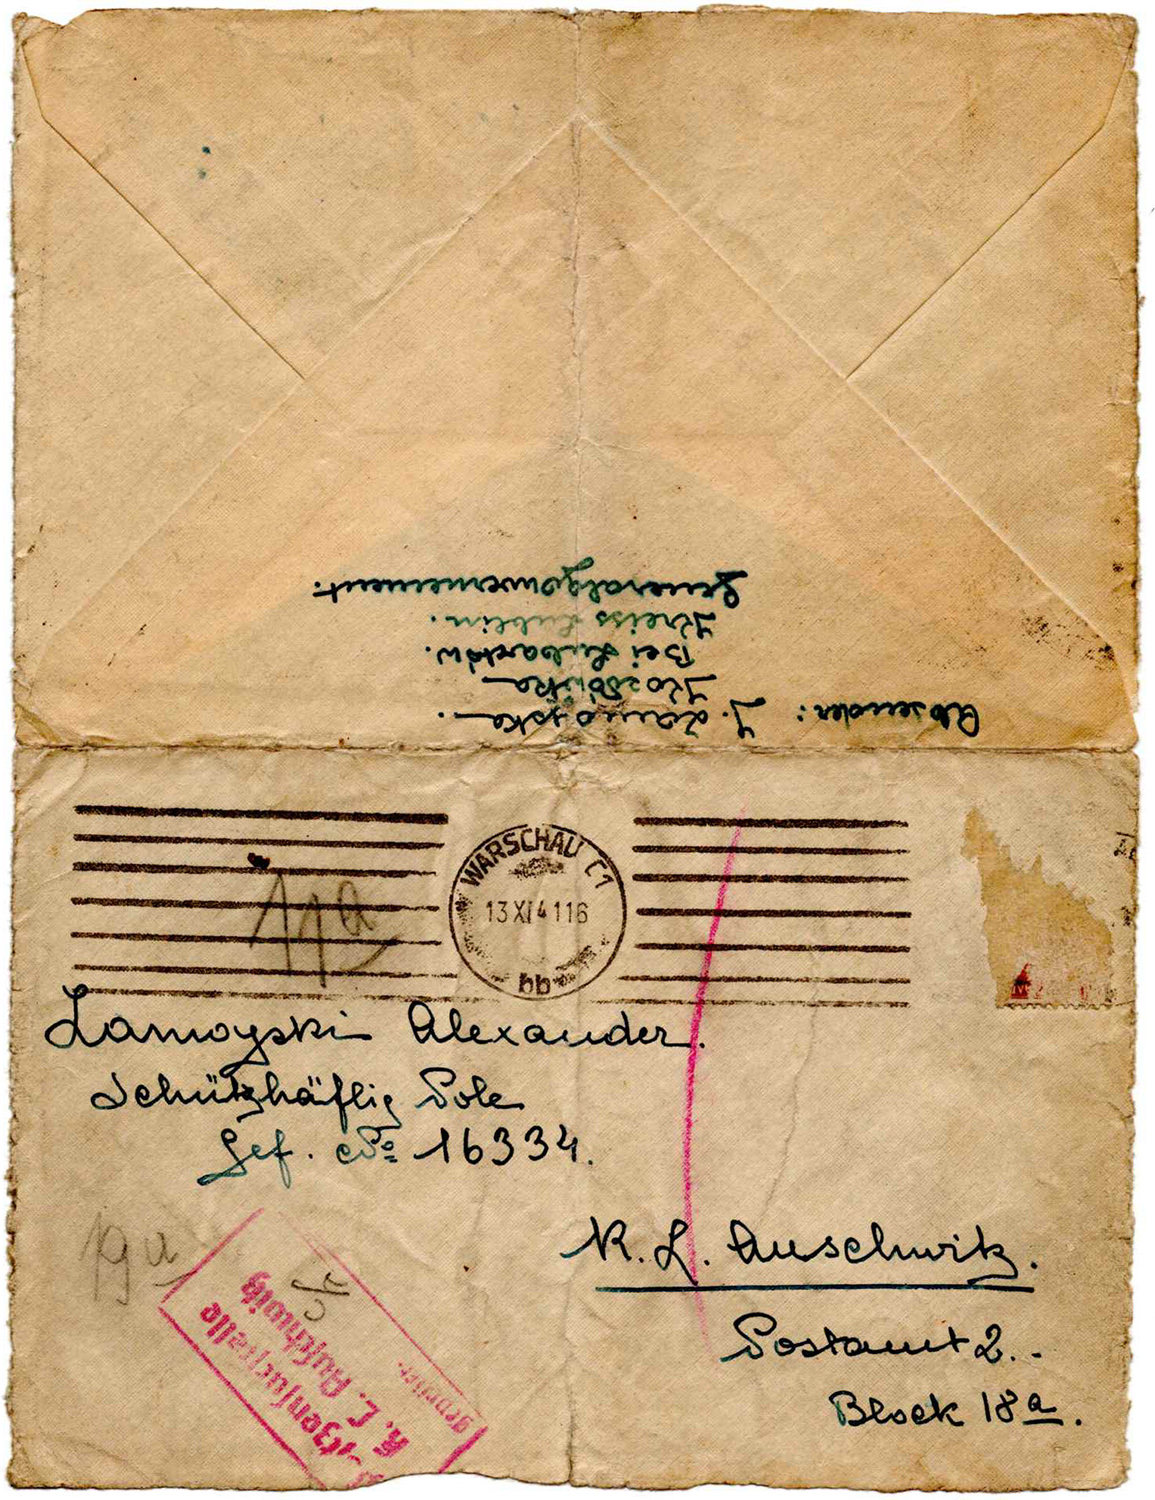 Absender: J. Zamoyska.
Kozłówka
Bei Lubartów.
Kreiss Lublin.
Generalgouvernement.
WARSCHAU C1
13 XI 41 16
bb
Zamoyski Alexander.
Schützhäftlig Pole
Gef. No 16334.
K. L. Auschwitz.
Postamt 2.
Block 18a.
19a
Postzensurstelle
K. L. Auschwitz
geprüft